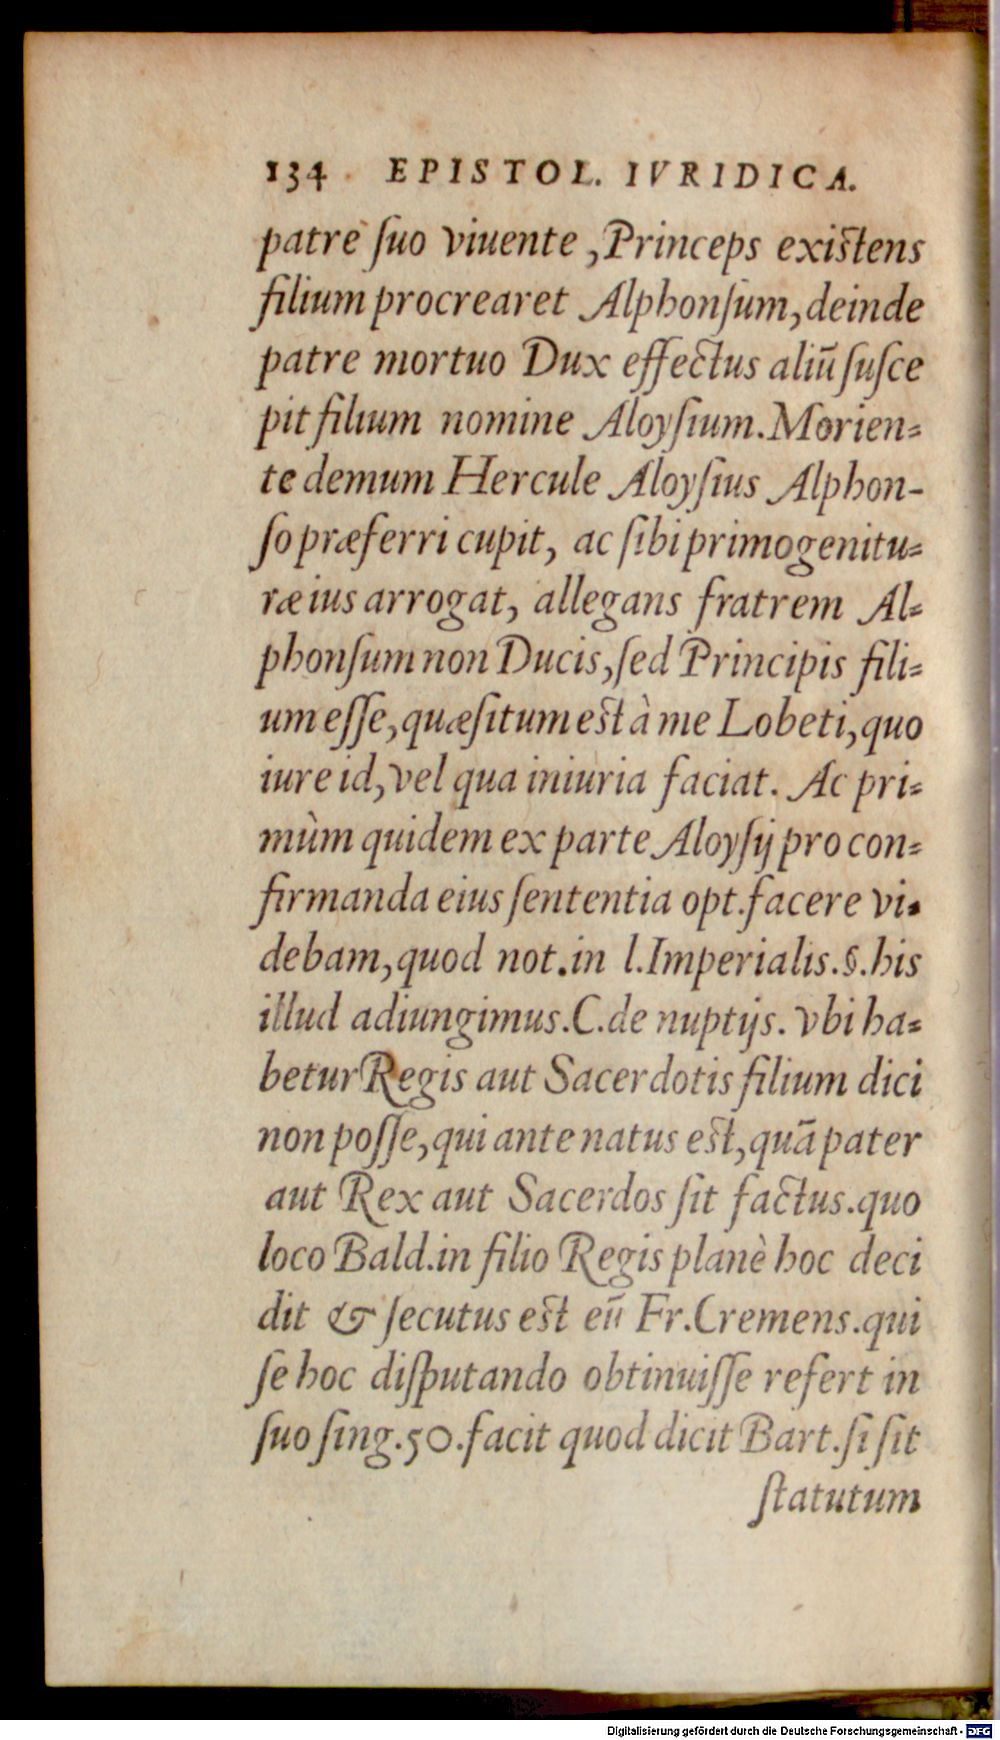 134 EPISTOL. IVRIDICA.
patre suo viuente, Princeps existens
filium procrearet Alphonsum, deinde
patre mortuo Dux effectus aliū susce
pit filium nomine Aloysium. Morien=
te demum Hercule Aloysius Alphon-
so præferri cupit, ac sibi primogenitu=
ræ ius arrogat, allegans fratrem Al=
phonsum non Ducis, sed Principis fili=
um esse, quæsitum est à me Lobeti, quo
iure id, vel qua iniuria faciat. Ac pri=
mùm quidem ex parte Aloysij pro con=
firmanda eius sententia opt. facere vi=
debam, quod not. in l. Imperialis. §. his
illud adiungimus. C. de nuptijs. vbi ha=
betur Regis aut Sacerdotis filium dici
non posse, qui ante natus est, quā pater
aut Rex aut Sacerdos sit factus. quo
loco Bald. in filio Regis planè hoc deci
dit & secutus est eū Fr. Cremens. qui
se hoc disputando obtinuisse refert in
suo sing. 50. facit quod dicit Bart. si sit
statutum
Digitalisierung gefördert durch die Deutsche Forschungsgemeinschaft - DFG